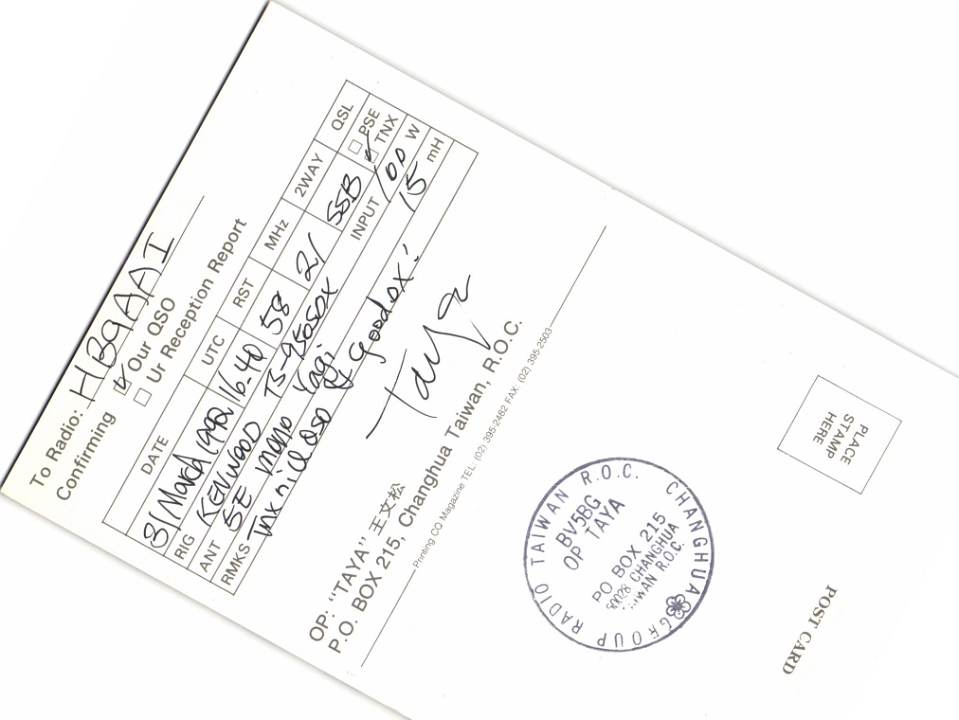 To Radio: HB9AAI
Confirming ☑ Our QSO
☐ Ur Reception Report
DATE UTC RST MHz 2WAY QSL
31 March 1992 16-40 58 21 SSB ☐ PSE ☑ TNX
RIG KENWOOD TS-950SDX INPUT 100 W
ANT 5E mono Yagi 15 mH
RMKS Tnx nice QSO & Good DX!
Taya
OP: "TAYA" 王文松
P.O. BOX 215, Changhua Taiwan, R.O.C.
Printing CQ Magazine TEL: (02) 395-2482 FAX: (02) 395-2503
CHANGHUA GROUP RADIO TAIWAN R.O.C.
BV5BG
OP TAYA
PO BOX 215
50028 CHANGHUA
TAIWAN R.O.C.
PLACE
STAMP
HERE
POST CARD